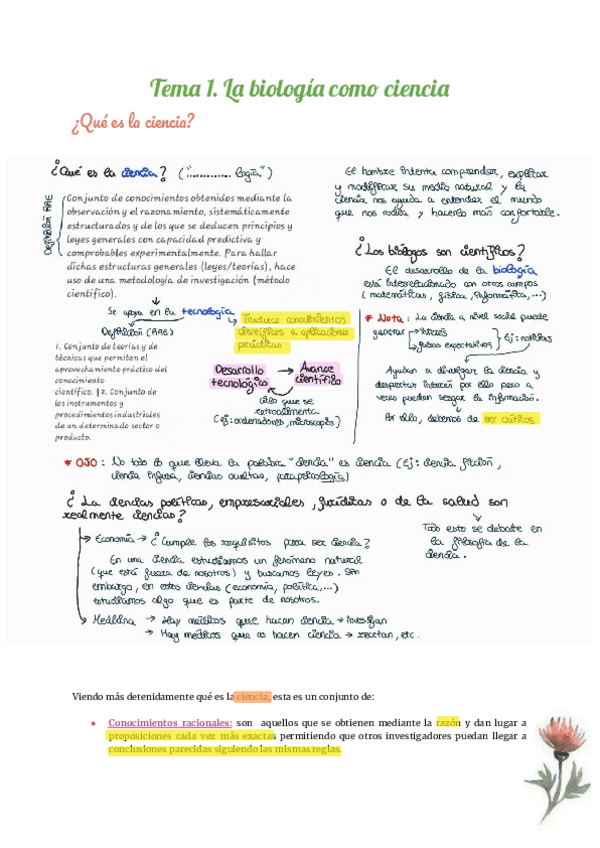 Tema 1. La biología como ciencia
¿Qué es la ciencia?
¿Qué es la ciencia? ("............ logía")
Definición RAE
Conjunto de conocimientos obtenidos mediante la
observación y el razonamiento, sistemáticamente
estructurados y de los que se deducen principios y
leyes generales con capacidad predictiva y
comprobables experimentalmente. Para hallar
dichas estructuras generales (leyes/teorías), hace
uso de una metodología de investigación (método
científico).
Se apoya en la tecnología
Definición (RAE)
1. Conjunto de teorías y de
técnicas que permiten el
aprovechamiento práctico del
conocimiento
científico. § 2. Conjunto de
los instrumentos y
procedimientos industriales
de un determinado sector o
producto.
Traduce conocimientos
científicos a aplicaciones
prácticas
Desarrollo → Avance
tecnológico científico
ciclo que se
retroalimenta
(ej: ordenadores, microscopios)
El hombre intenta comprender, explicar
y modificar su medio natural y la
ciencia nos ayuda a entender el mundo
que nos rodea y hacerlo más confortable.
¿Los biólogos son científicos?
El desarrollo de la biología
está interrelacionado con otros campos
(matemáticas, física, informática,...)
* Nota: La ciencia a nivel social puede
generar → interés
→ falsas expectativas
Ej: noticias
Ayudan a divulgar la ciencia y
despertar interés por ello pero a
veces pueden sesgar la información.
Por ello, debemos de ser críticos
* OJO: No todo lo que lleva la palabra "ciencia" es ciencia (Ej: ciencia ficción,
ciencia infusa, ciencias ocultas, parapsicología)
¿La ciencias políticas, empresariales, jurídicas o de la salud son
realmente ciencias?
Todo esto se debate en
la filosofía de la
ciencia.
→ Economía → ¿Cumple los requisitos para ser ciencia?
En una ciencia estudiamos un fenómeno natural
(que está fuera de nosotros) y buscamos leyes. Sin
embargo, en estas ciencias (economía, política,...)
estudiamos algo que es parte de nosotros.
→ Medicina → Hay médicos que hacen ciencia → investigan
→ Hay médicos que no hacen ciencia → recetan, etc.
Viendo más detenidamente qué es la ciencia, esta es un conjunto de:
● Conocimientos racionales: son aquellos que se obtienen mediante la razón y dan lugar a
proposiciones cada vez más exactas permitiendo que otros investigadores puedan llegar a
conclusiones parecidas siguiendo las mismas reglas.